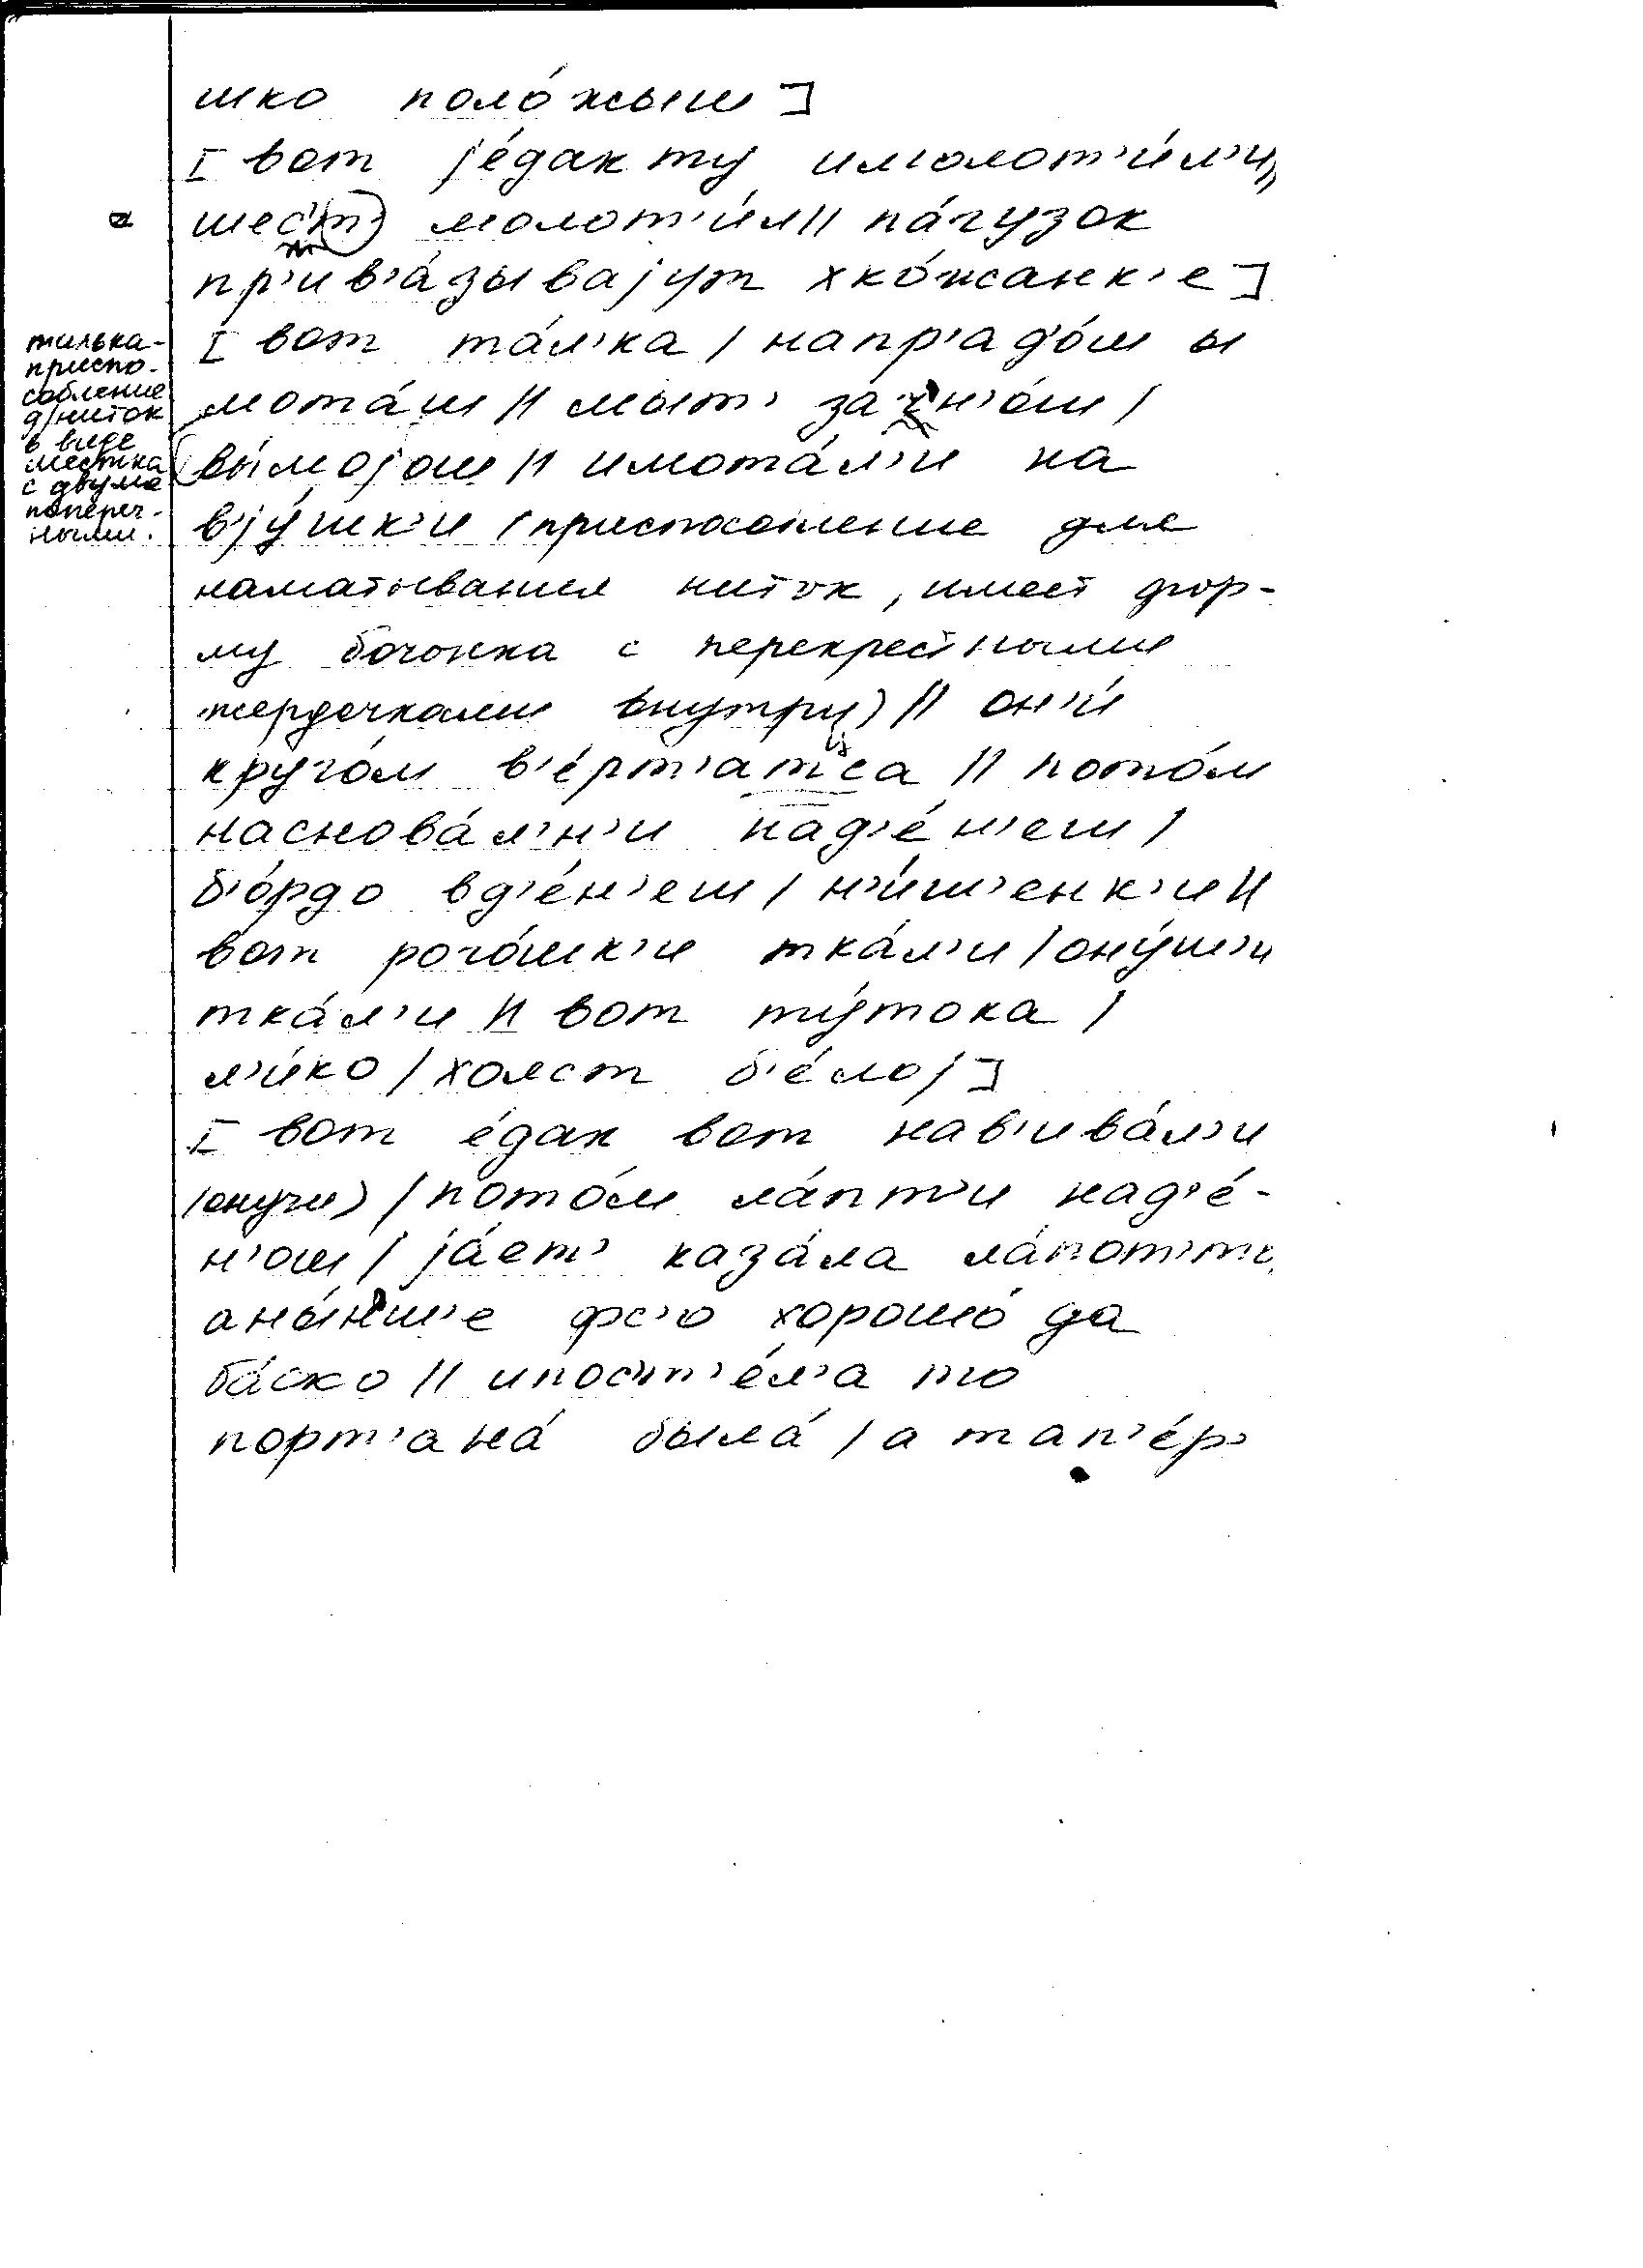 шко поло́жыш]
[вот је́дак ту имолот'и́л'и//
шес'т') молот'и́л // па́гузок
пр'ив'а́зывајут хко́жанк'е]
[вот та́л'ка / напр'ад'о́ш ы
мота́ш // мыт' зач'н'о́ш /
вы́мојош // имота́л'и на
в'jу́шк'и (приспособление для
наматывания ниток, имеет фор-
му бочонка с перекрестными
жердочками внутри) // он'и́
круго́м в'е́рт'атса //
пото́м
наснова́л'н'и над'е́н'еш /
б'о́рдо вд'е́н'еш / н'и́ш'енк'и //
вот рого́шк'и тка́л'и / ону́ш'и
тка́л'и // вот ту́тока /
л'и́ко / холст б'е́лој]
[вот е́дак вот нав'ива́л'и
(онучи) / пото́м ла́пт'и над'е́-
н'ош / jа́ет' каза́ла ла́пот'то
аны́н'ш'е фс'о хорошо́ да
ба́ско // ипос'т'е́л'а то
порт'ана́ была́ / а тап'е́р'
тилька-
приспо-
собление
д/ниток
в виде
шестика
с двумя
попереч-
ными.